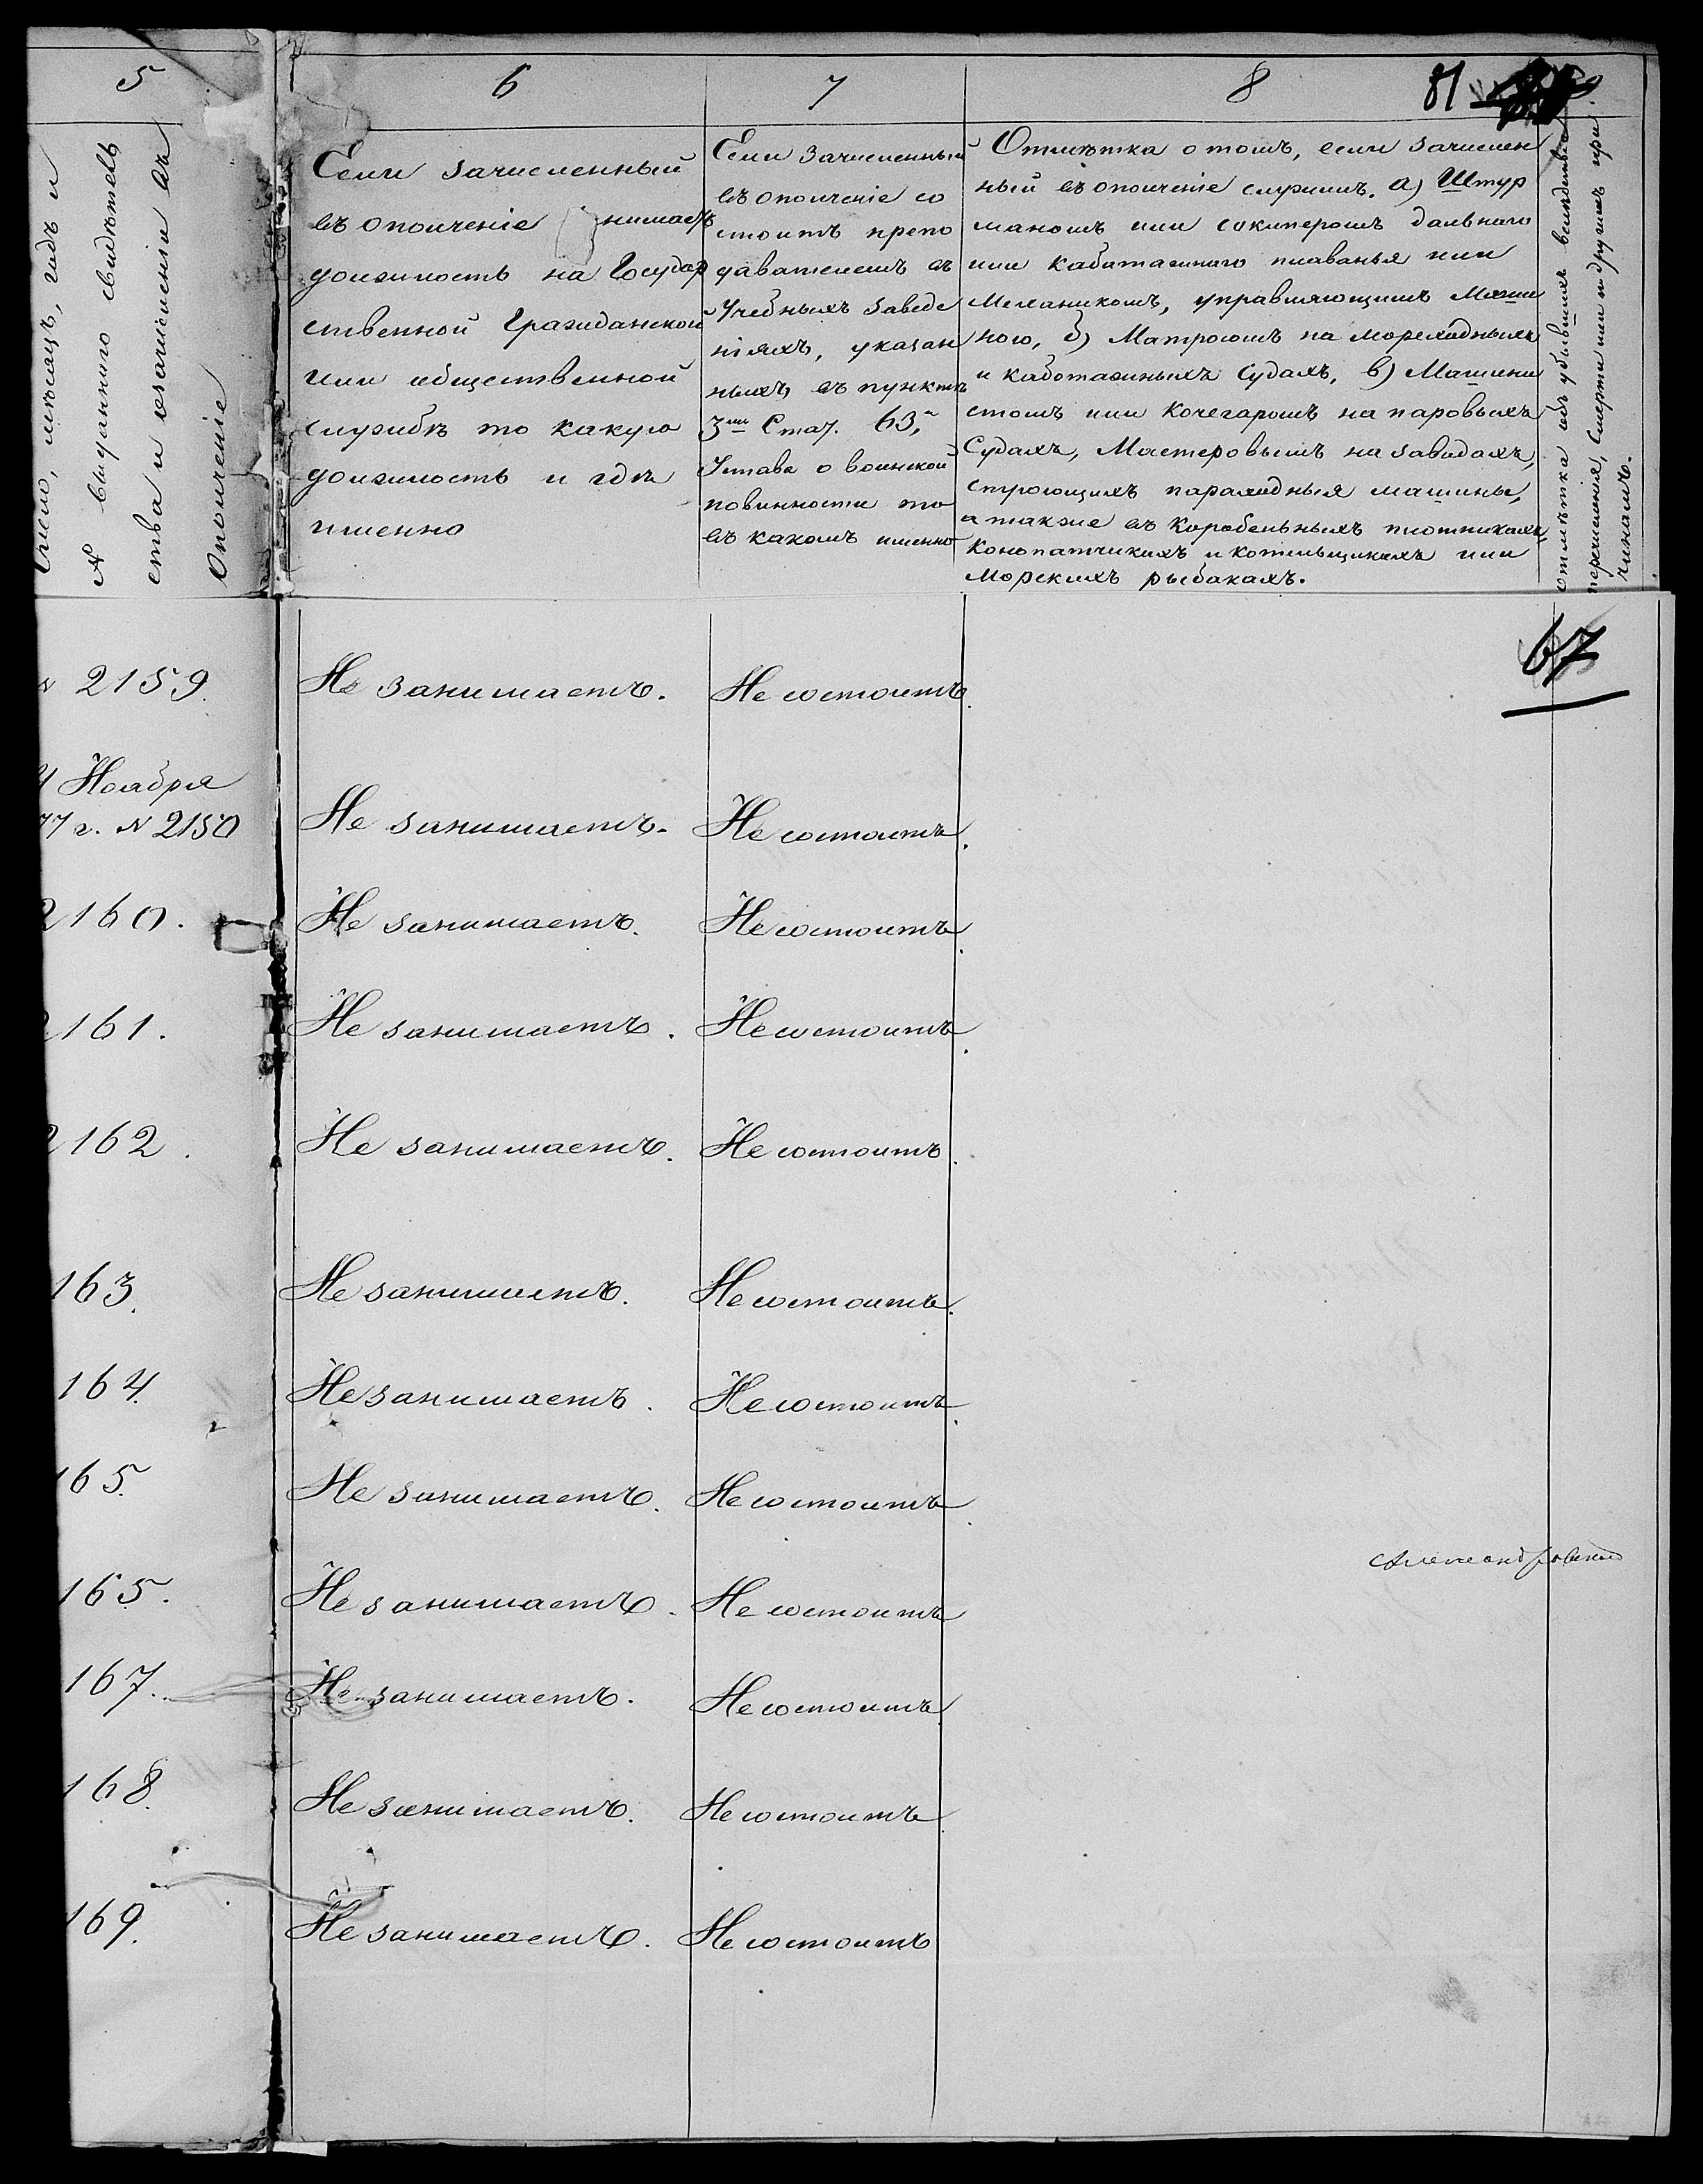 5
6
7
8
81
Число, мѣсяцъ, годъ и
№ выданнаго свидѣтель
ства и озачисленіи въ
Ополченіе
Если зачисленный
въ ополченіе нимаетъ
должность на Государ
ственной Гражданской
или общественной
службѣ то какую
должность и гдѣ
именно
Если зачисленный
въ ополченіе со
стоитъ препо
давателемъ въ
Учебныхъ Заведе
ніяхъ, указан
ныхъ въ пунктѣ
3мъ Стат. 63,
Устава о воинской
повинности то
въ какомъ именно
Отмѣтка о томъ, если зачислен
ный въ ополченіе служитъ. а) Штур
маномъ или шкиперомъ дальнаго
или кабатажнаго плаванья или
Механикомъ, управляющимъ Маши
ною, б) Матросомъ на мореходныхъ
и каботажныхъ Судахъ, в) Машини
стомъ или Кочегаромъ на паровыхъ
Судахъ, Мастеровымъ на заводахъ,
строющихъ пароходныя машины,
а также въ Коробельныхъ плотникахъ,
Конопатчикахъ и котельщикахъ или
Морскихъ рыбакахъ.
отмѣтка объ убывшихъ вслѣдствіе
перечисленія, Смерти или по другимъ при
чинамъ.
67
2159. Не Занимаетъ. Не состоитъ.
Ноября
77 г. № 2150 Не занимаетъ. Не состоитъ.
2160. Не занимаетъ. Не состоитъ.
2161. Не занимаетъ. Не состоитъ.
2162. Не занимаетъ. Не состоитъ.
163. Не занимаетъ. Не состоитъ.
164. Не занимаетъ. Не состоитъ.
165. Не занимаетъ. Не состоитъ.
165. Не занимаетъ. Не состоитъ
167. Не занимаетъ. Не состоитъ.
168. Не занимаетъ. Не состоитъ
169. Не занимаетъ. Не состоитъ